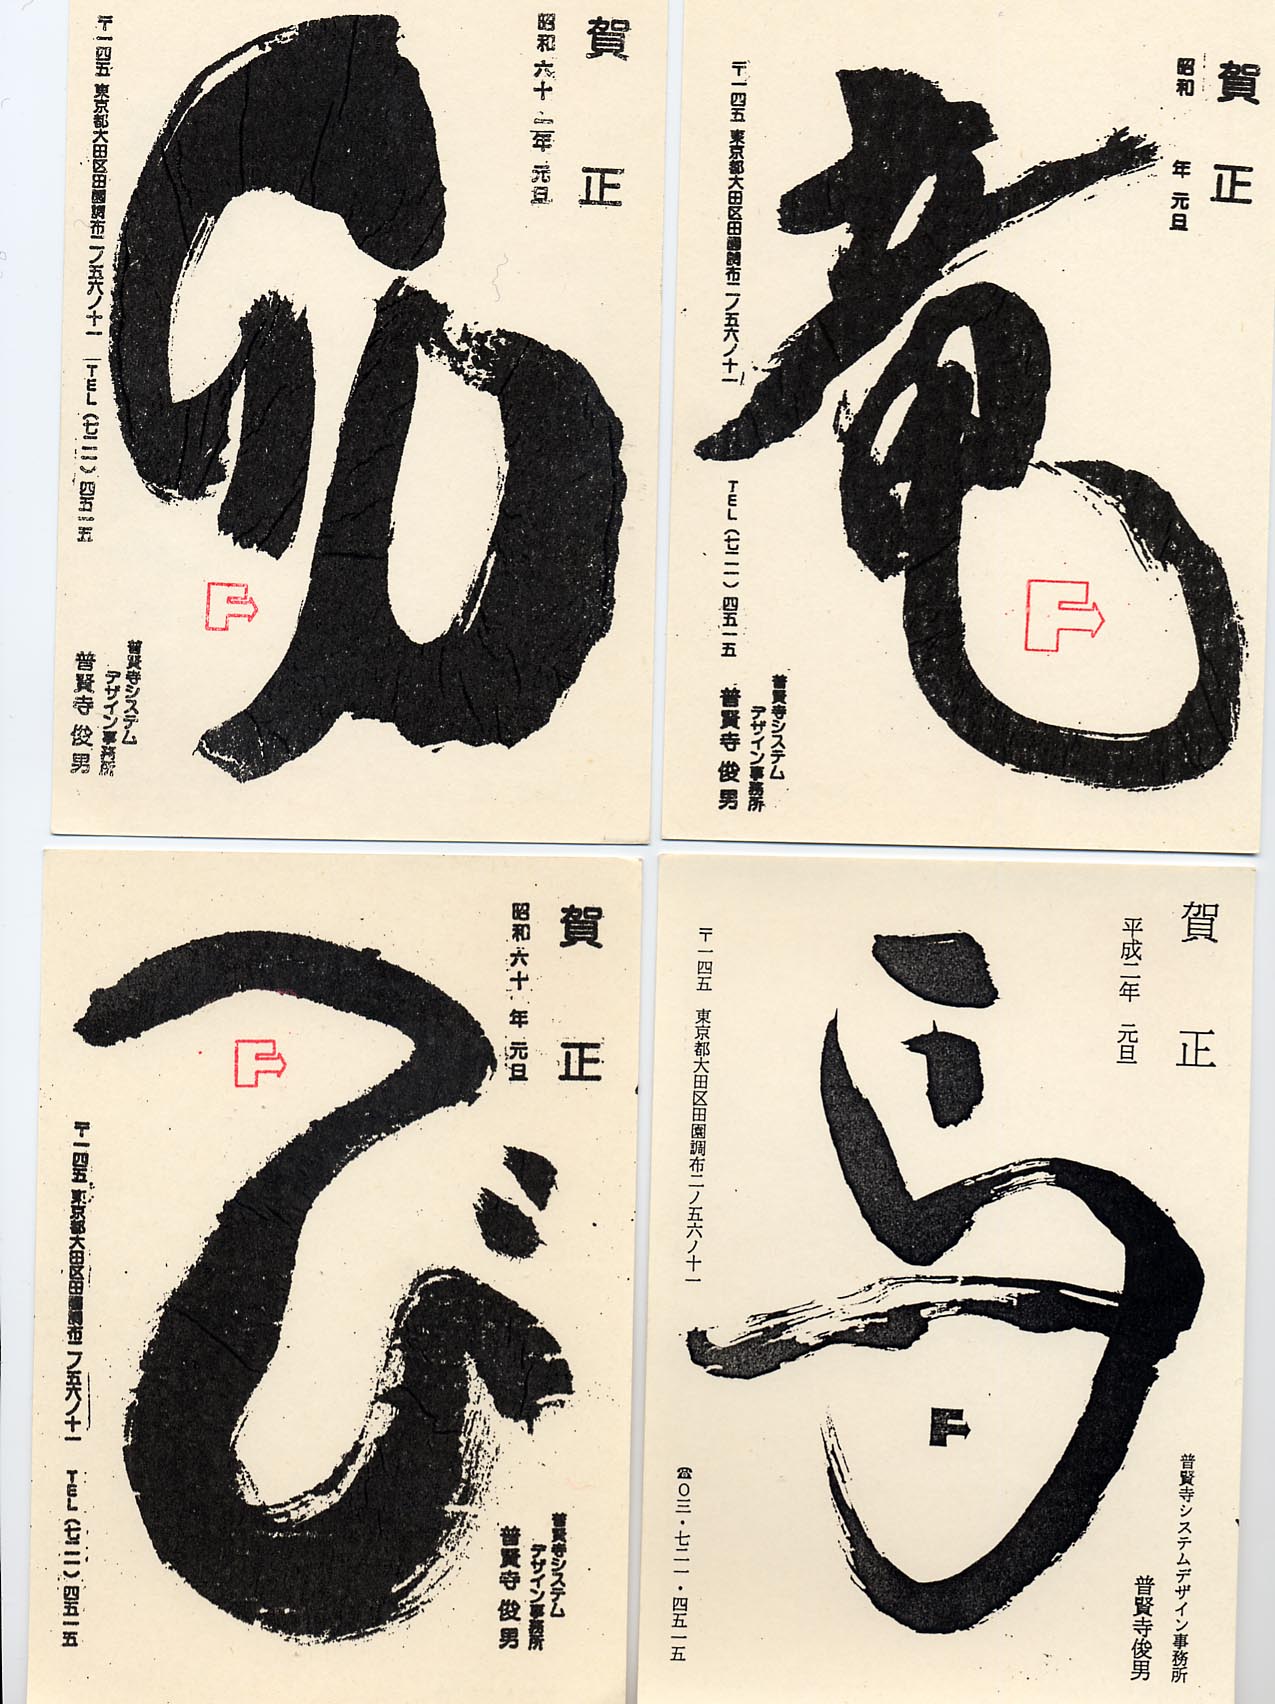 賀正
昭和六十二年 元旦
卯
〒一四五 東京都大田区田園調布二ノ五六ノ十一 TEL(七二一)四五一五
普賢寺システム
デザイン事務所
普賢寺俊男
賀正
昭和 年 元旦
竜
〒一四五 東京都大田区田園調布二ノ五六ノ十一 TEL(七二一)四五一五
普賢寺システム
デザイン事務所
普賢寺俊男
賀正
昭和六十 年 元旦
〒一四五 東京都大田区田園調布二ノ五六ノ十一 TEL(七二一)四五一五
普賢寺システム
デザイン事務所
普賢寺俊男
賀正
平成二年 元旦
〒一四五 東京都大田区田園調布二ノ五六ノ十一
☎〇三・七二一・四五一五
普賢寺システムデザイン事務所
普賢寺俊男